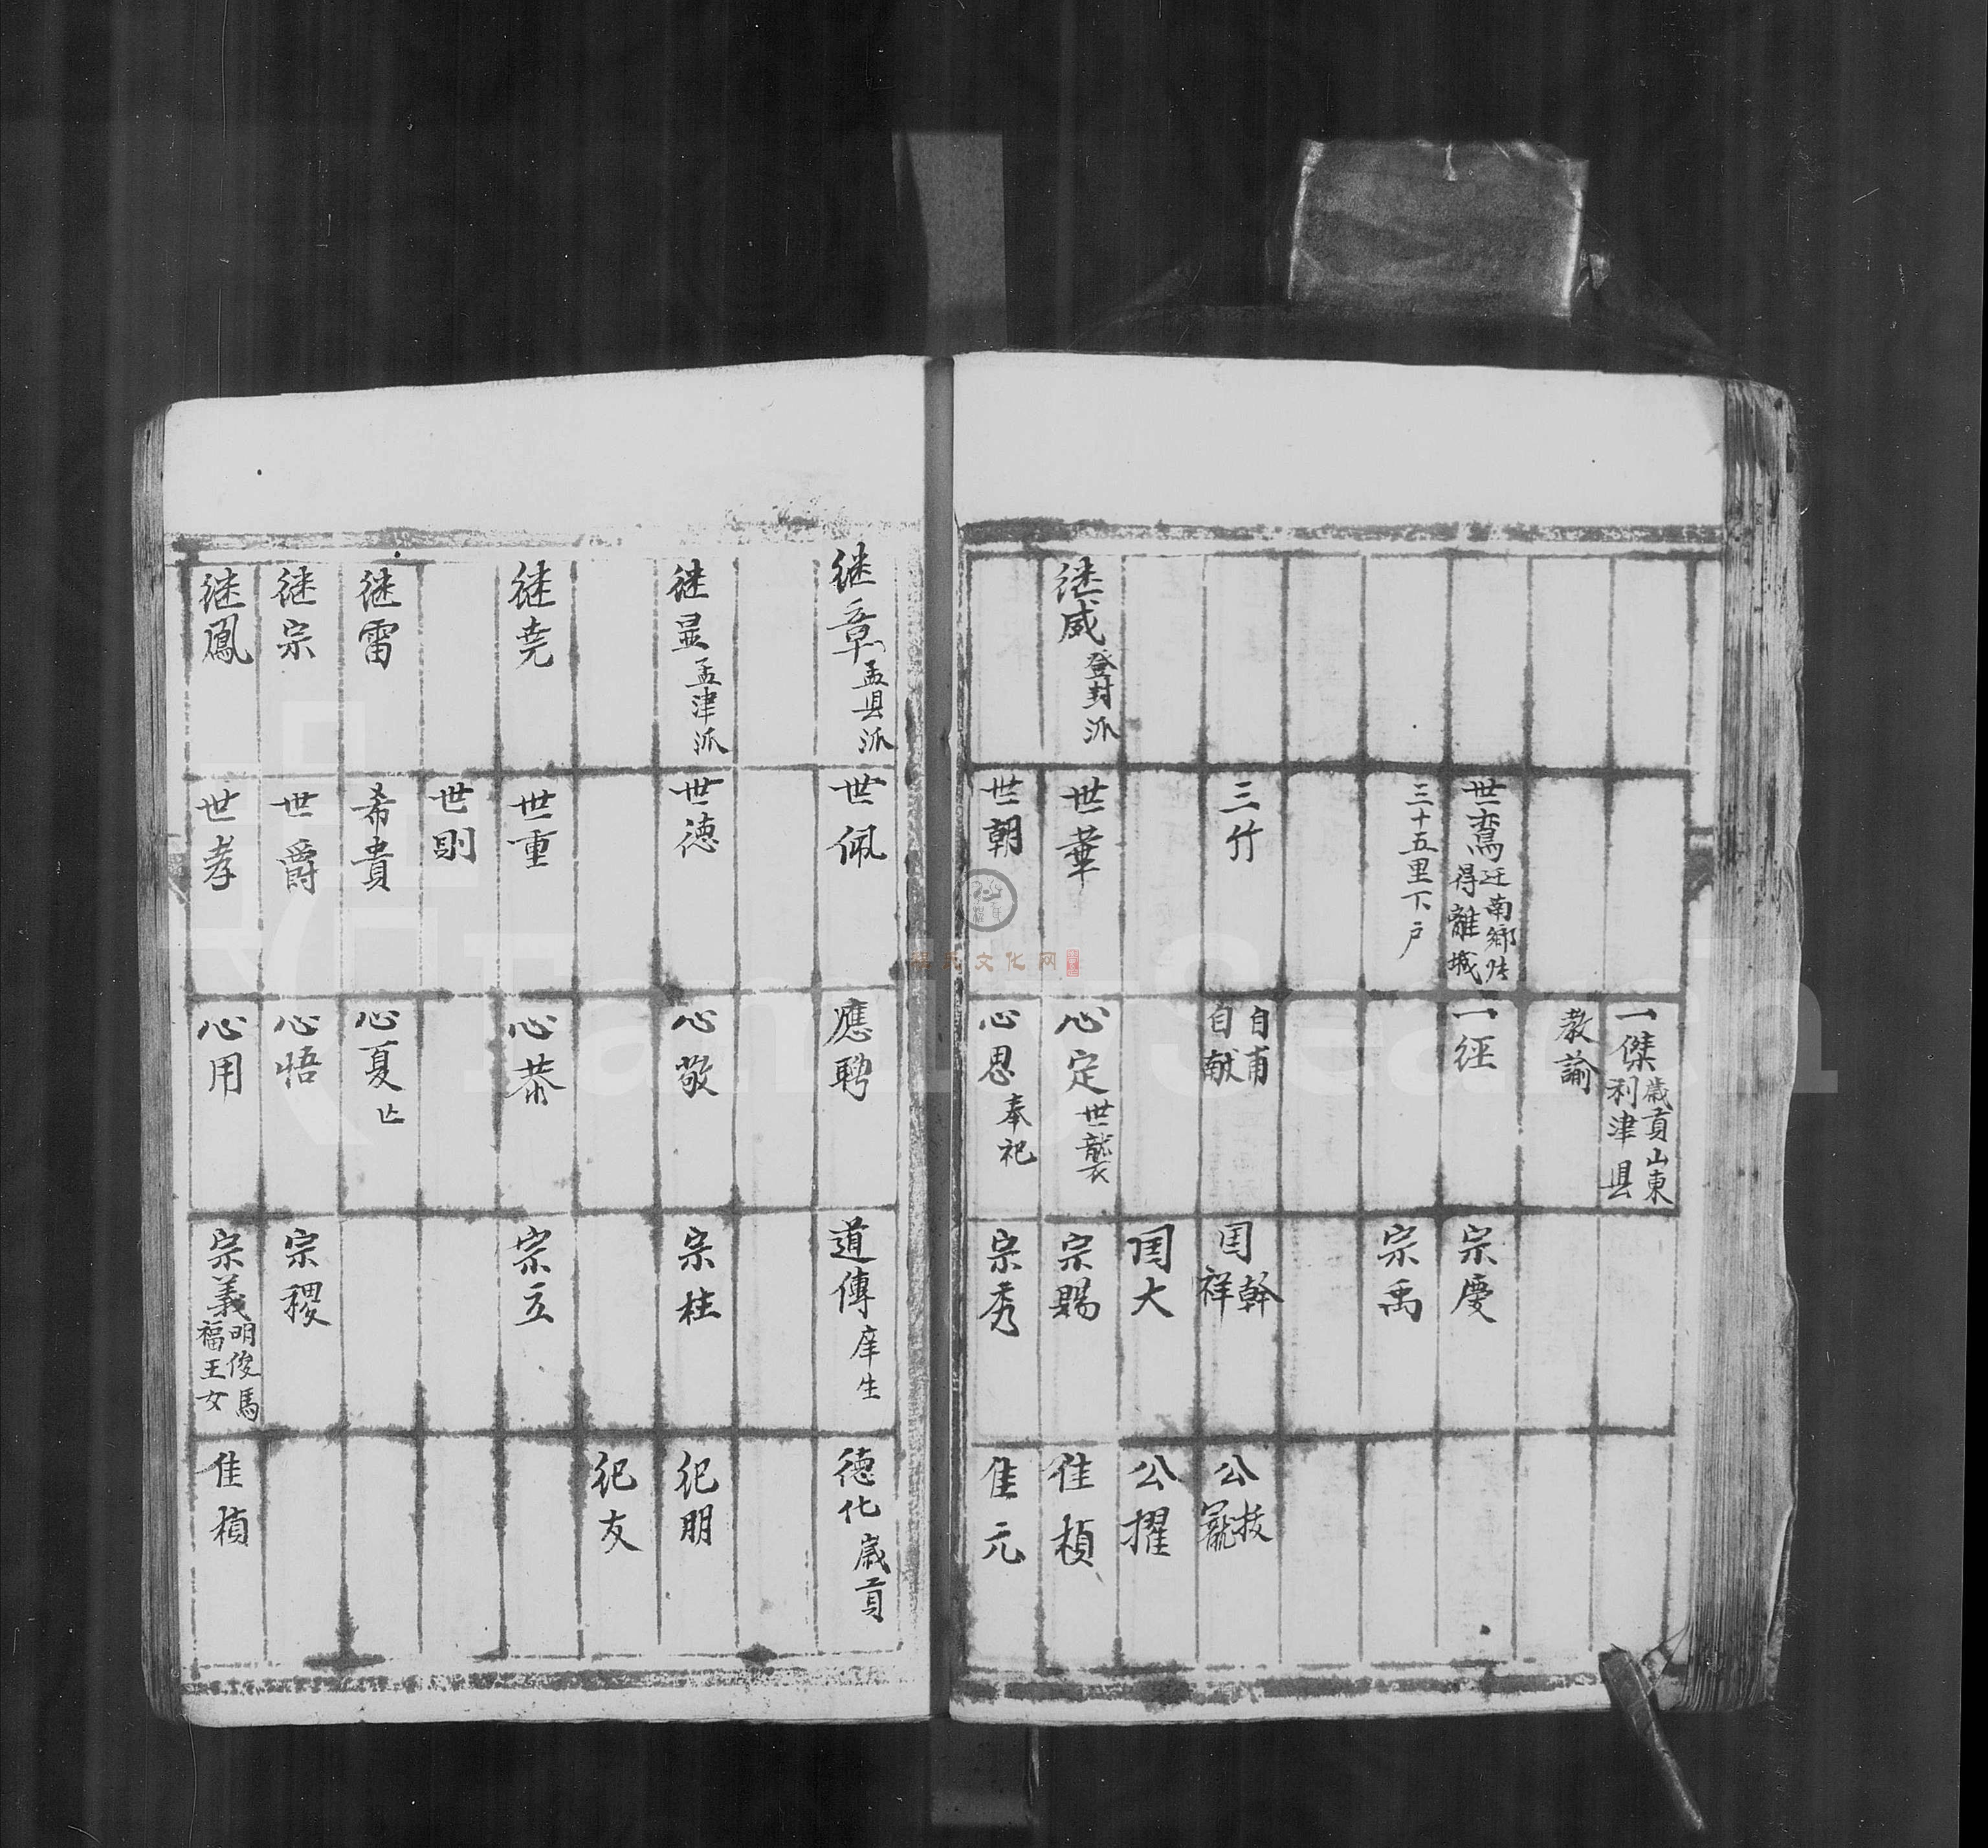 一傑 歲貢山東
利津县
教諭
世鸞 迁南鄉
得離城
一徑
宗慶
三十五里下户
宗禹
三竹
自甫
自献
国幹
祥
公技
寵
国大
公擢
继威 登封派
世華
心定 世襲
宗賜
佳楨
世朝
心思 奉祀
宗秀
佳元
继章 孟县派
世佩
應聘
道傳 庠生
德化 歲貢
继显 孟津派
世德
心敬
宗柱
祀朋
祀友
继尭
世重
心恭
宗立
世則
继雷
希貴
心夏 亡
继宗
世爵
心悟
宗稷
继鳳
世孝
心用
宗義 明俊馬
福王女
佳楨